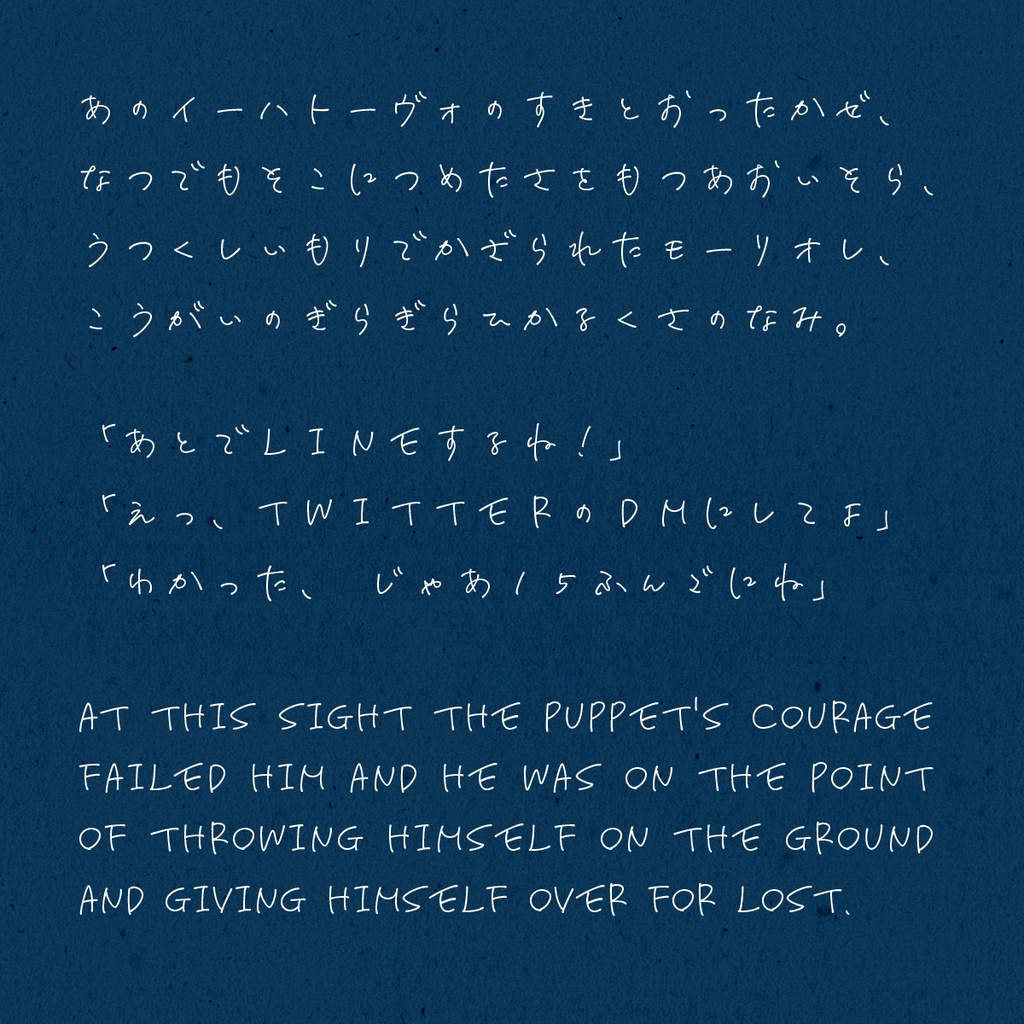 あのイーハトーヴォのすきとおったかぜ、
なつでもそこにつめたさをもつあおいそら、
うつくしいもりでかざられたモーリオし、
こうがいのぎらぎらひかるくさのなみ。
「あとでLINEするね!」
「えっ、TWITTERのDMにしてよ」
「わかった、 じゃあ15ふんごにね」
AT THIS SIGHT THE PUPPET'S COURAGE
FAILED HIM AND HE WAS ON THE POINT
OF THROWING HIMSELF ON THE GROUND
AND GIVING HIMSELF OVER FOR LOST.